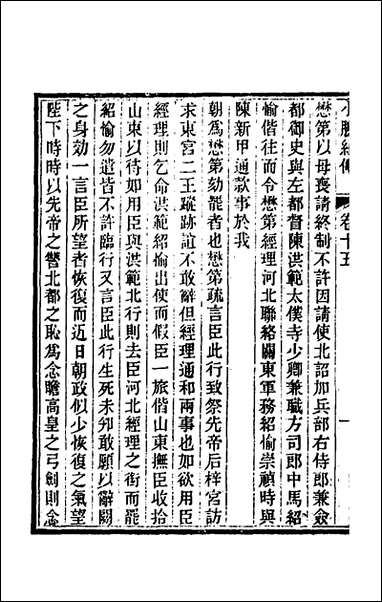 小腆紀傳 卷十五 一
懋第以母喪請終制不許因請使北詔加兵部右侍郎兼僉
都御史與左都督陳洪範太僕寺少卿兼職方司郎中馬紹
愉偕往而令懋第經理河北聯絡關東軍務紹愉崇禎時與
陳新甲通款事於我
朝爲懋第劾罷者也懋第疏言臣此行致祭先帝后梓宮訪
求東宮二王蹤跡誼不敢辭但經理通和兩事也如欲用臣
經理則乞命洪範紹愉出使而假臣一旅偕山東撫臣收拾
山東以待如用臣與洪範北行則去臣河北經理之銜而罷
紹愉勿遣皆不許臨行又言臣此行生死未卜敢願以辭闕
之身効一言臣所望者恢復而近日朝政似少恢復之氣望
陛下時時以先帝之讐北都之恥爲念瞻高皇之弓劍則念